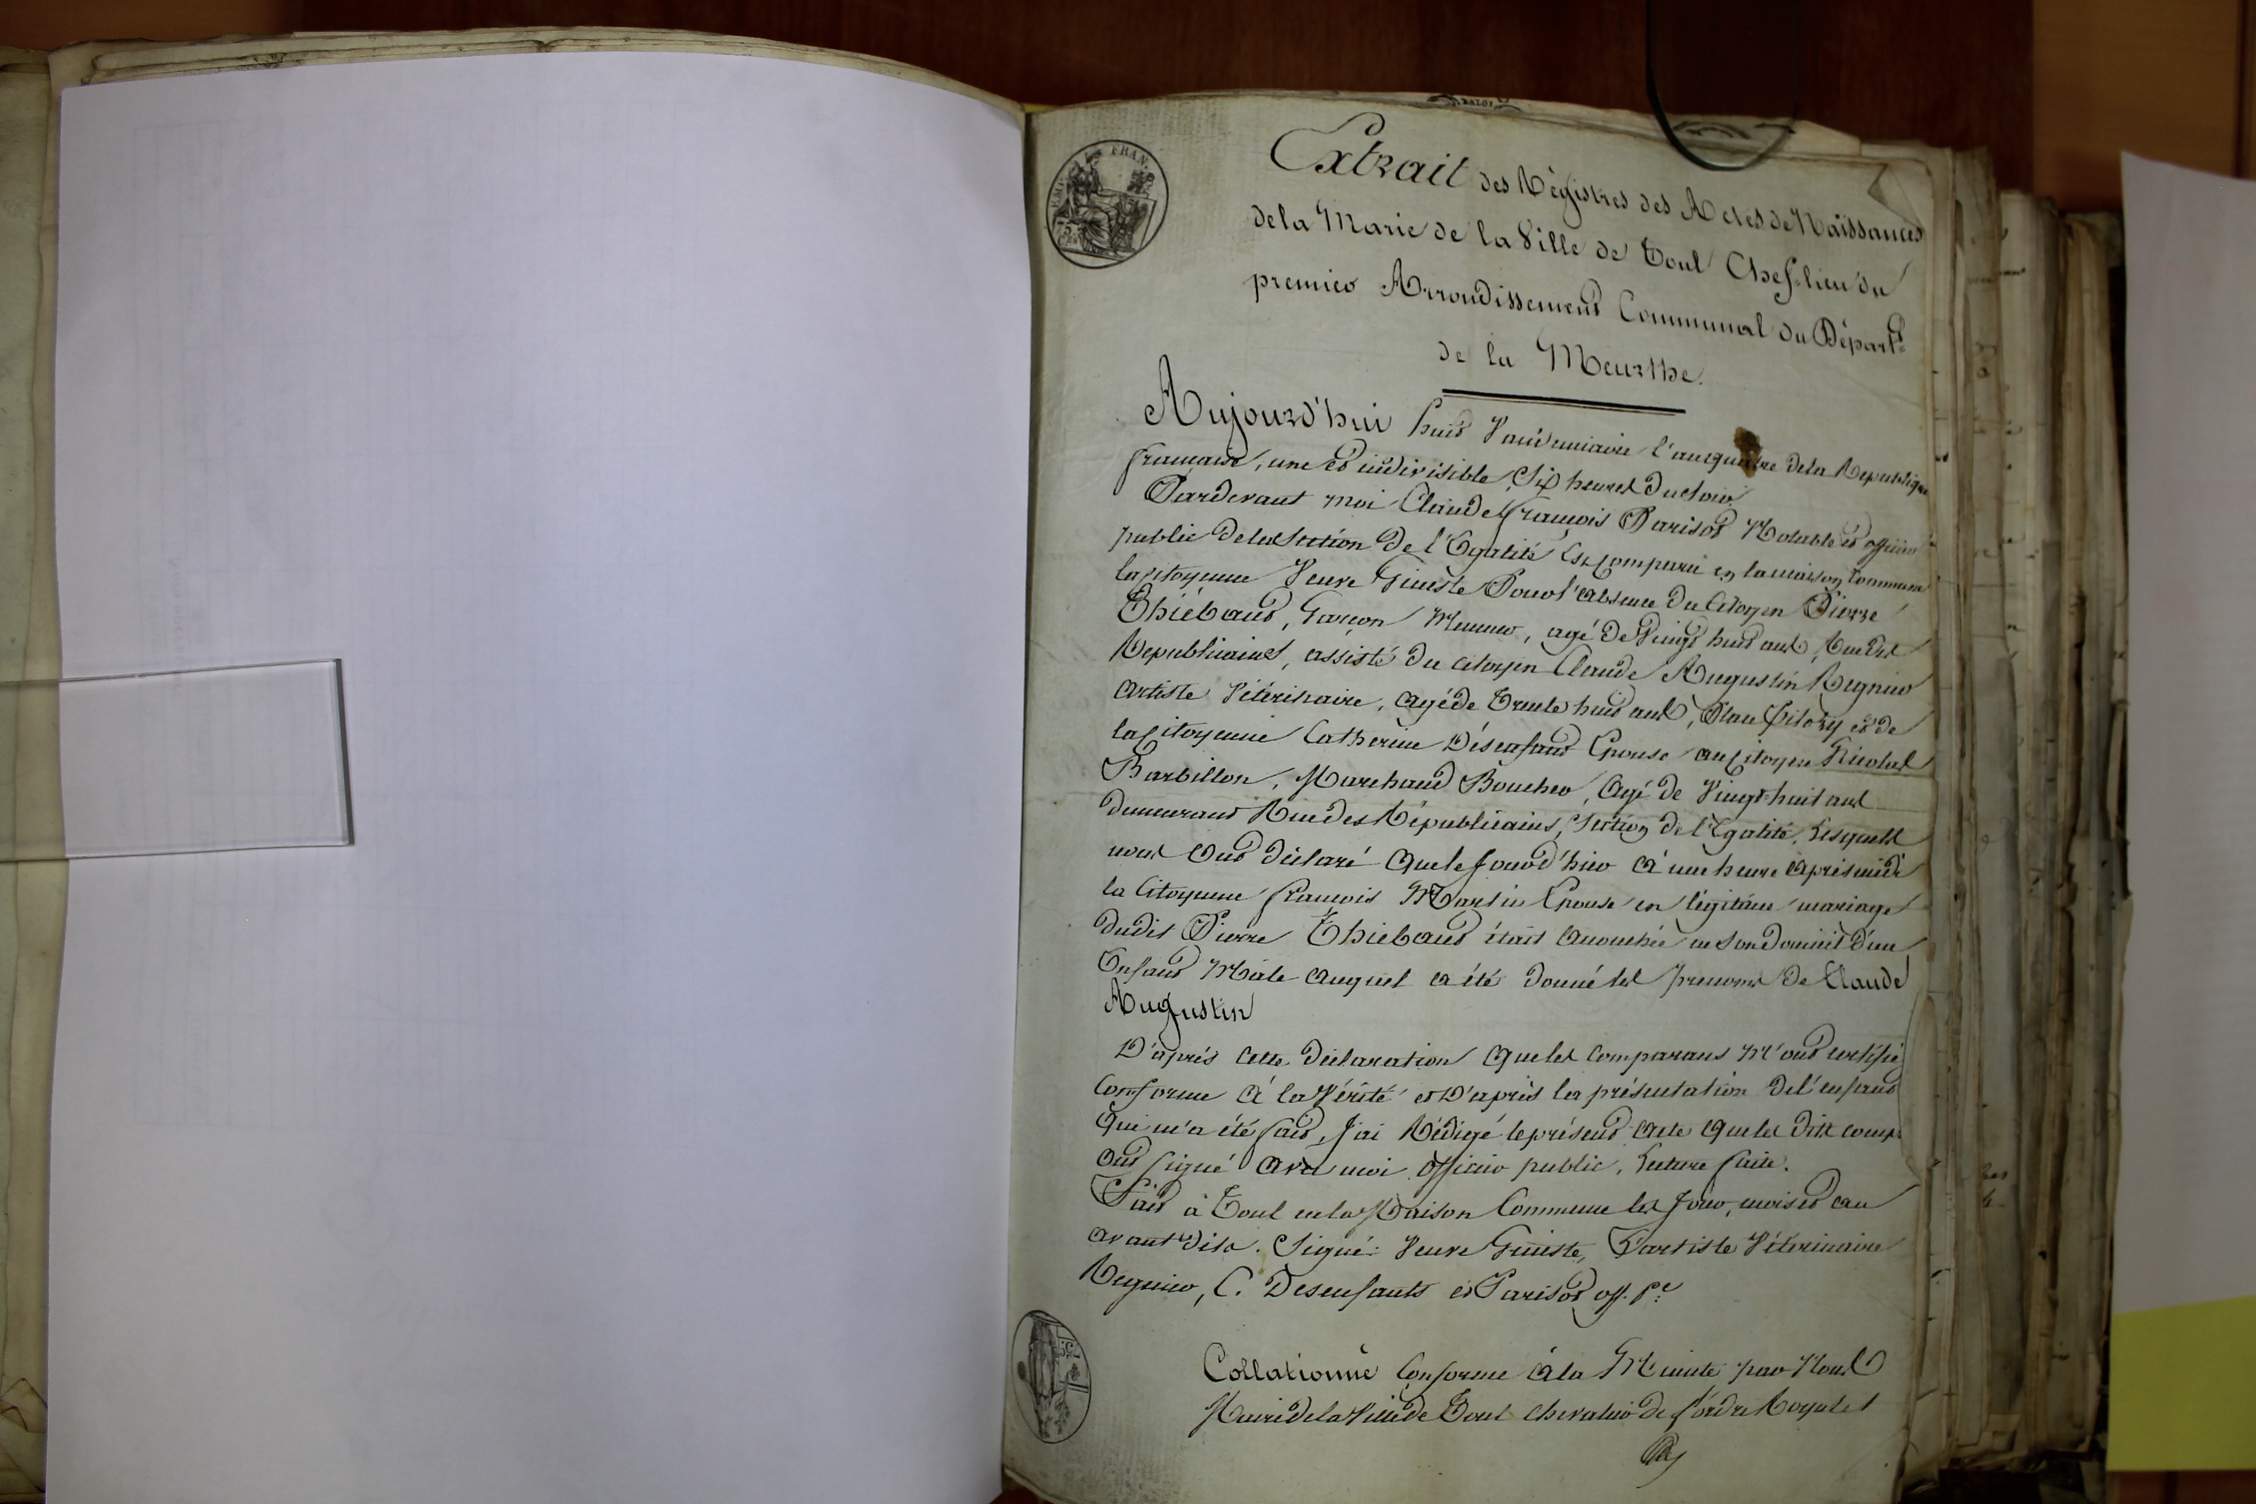 Extrait des Régistres des Actes de Naissances
de la Marie de la Ville de Toul Chef-lieu du
premier Arrondissement Communal du Départ.t
de la Meurthe.
Aujourd'hui huit Vendémiaire l'an quatre de la République
française, une et indivisible, Six heures du soir
Pardevant moi Claude François Parisot Notable et officier
public de la Section de l'Egalité Est comparu en la maison Commune
la Citoyenne Veuve Giniste Pour l'absence du Citoyen Pierre
Thiébaut, Garçon Meunier, agé de Vingt huit ans, Rue des
Republicains, assisté du citoyen Claude Augustin Regnier
Artiste Vétérinaire, agé de Trente huit ans, Place Citory et de
la Citoyenne Catherine Désenfant Epouse au Citoyen Nicolas
Barbillon, Marchand Boucher, Agé de Vingt-huit ans
demeurant Rue des Républicains, Section de l'Egalité, Lesquels
nous Ont déclaré que le Jour d'hier à une heure après midi
la Citoyenne François Martin Epouse en légitime mariage
dudit Pierre Thiebaut était accouchée en son Domicil d'un
Enfant Mâle auquel a été donné les prenoms de Claude
Augustin
D'après cette déclaration que les comparans m'ont certifié
conforme à la Vérité et D'après la présentation de l'enfant
qui m'a été fait, J'ai Rédigé le présent acte que les dits comp.
Ont signé avec moi officier public, Lecture faite.
Fait à Toul en la Maison Commune les Jour, mois et an
avant dits. Signé: Veuve Giniste, L'artiste Vétérinaire
Regnier, C. Desenfants et Parisot off. p.c
Collationné Conforme à la Minute par Nous
Maire de la Ville de Toul Chevalier de l'ordre Royal et